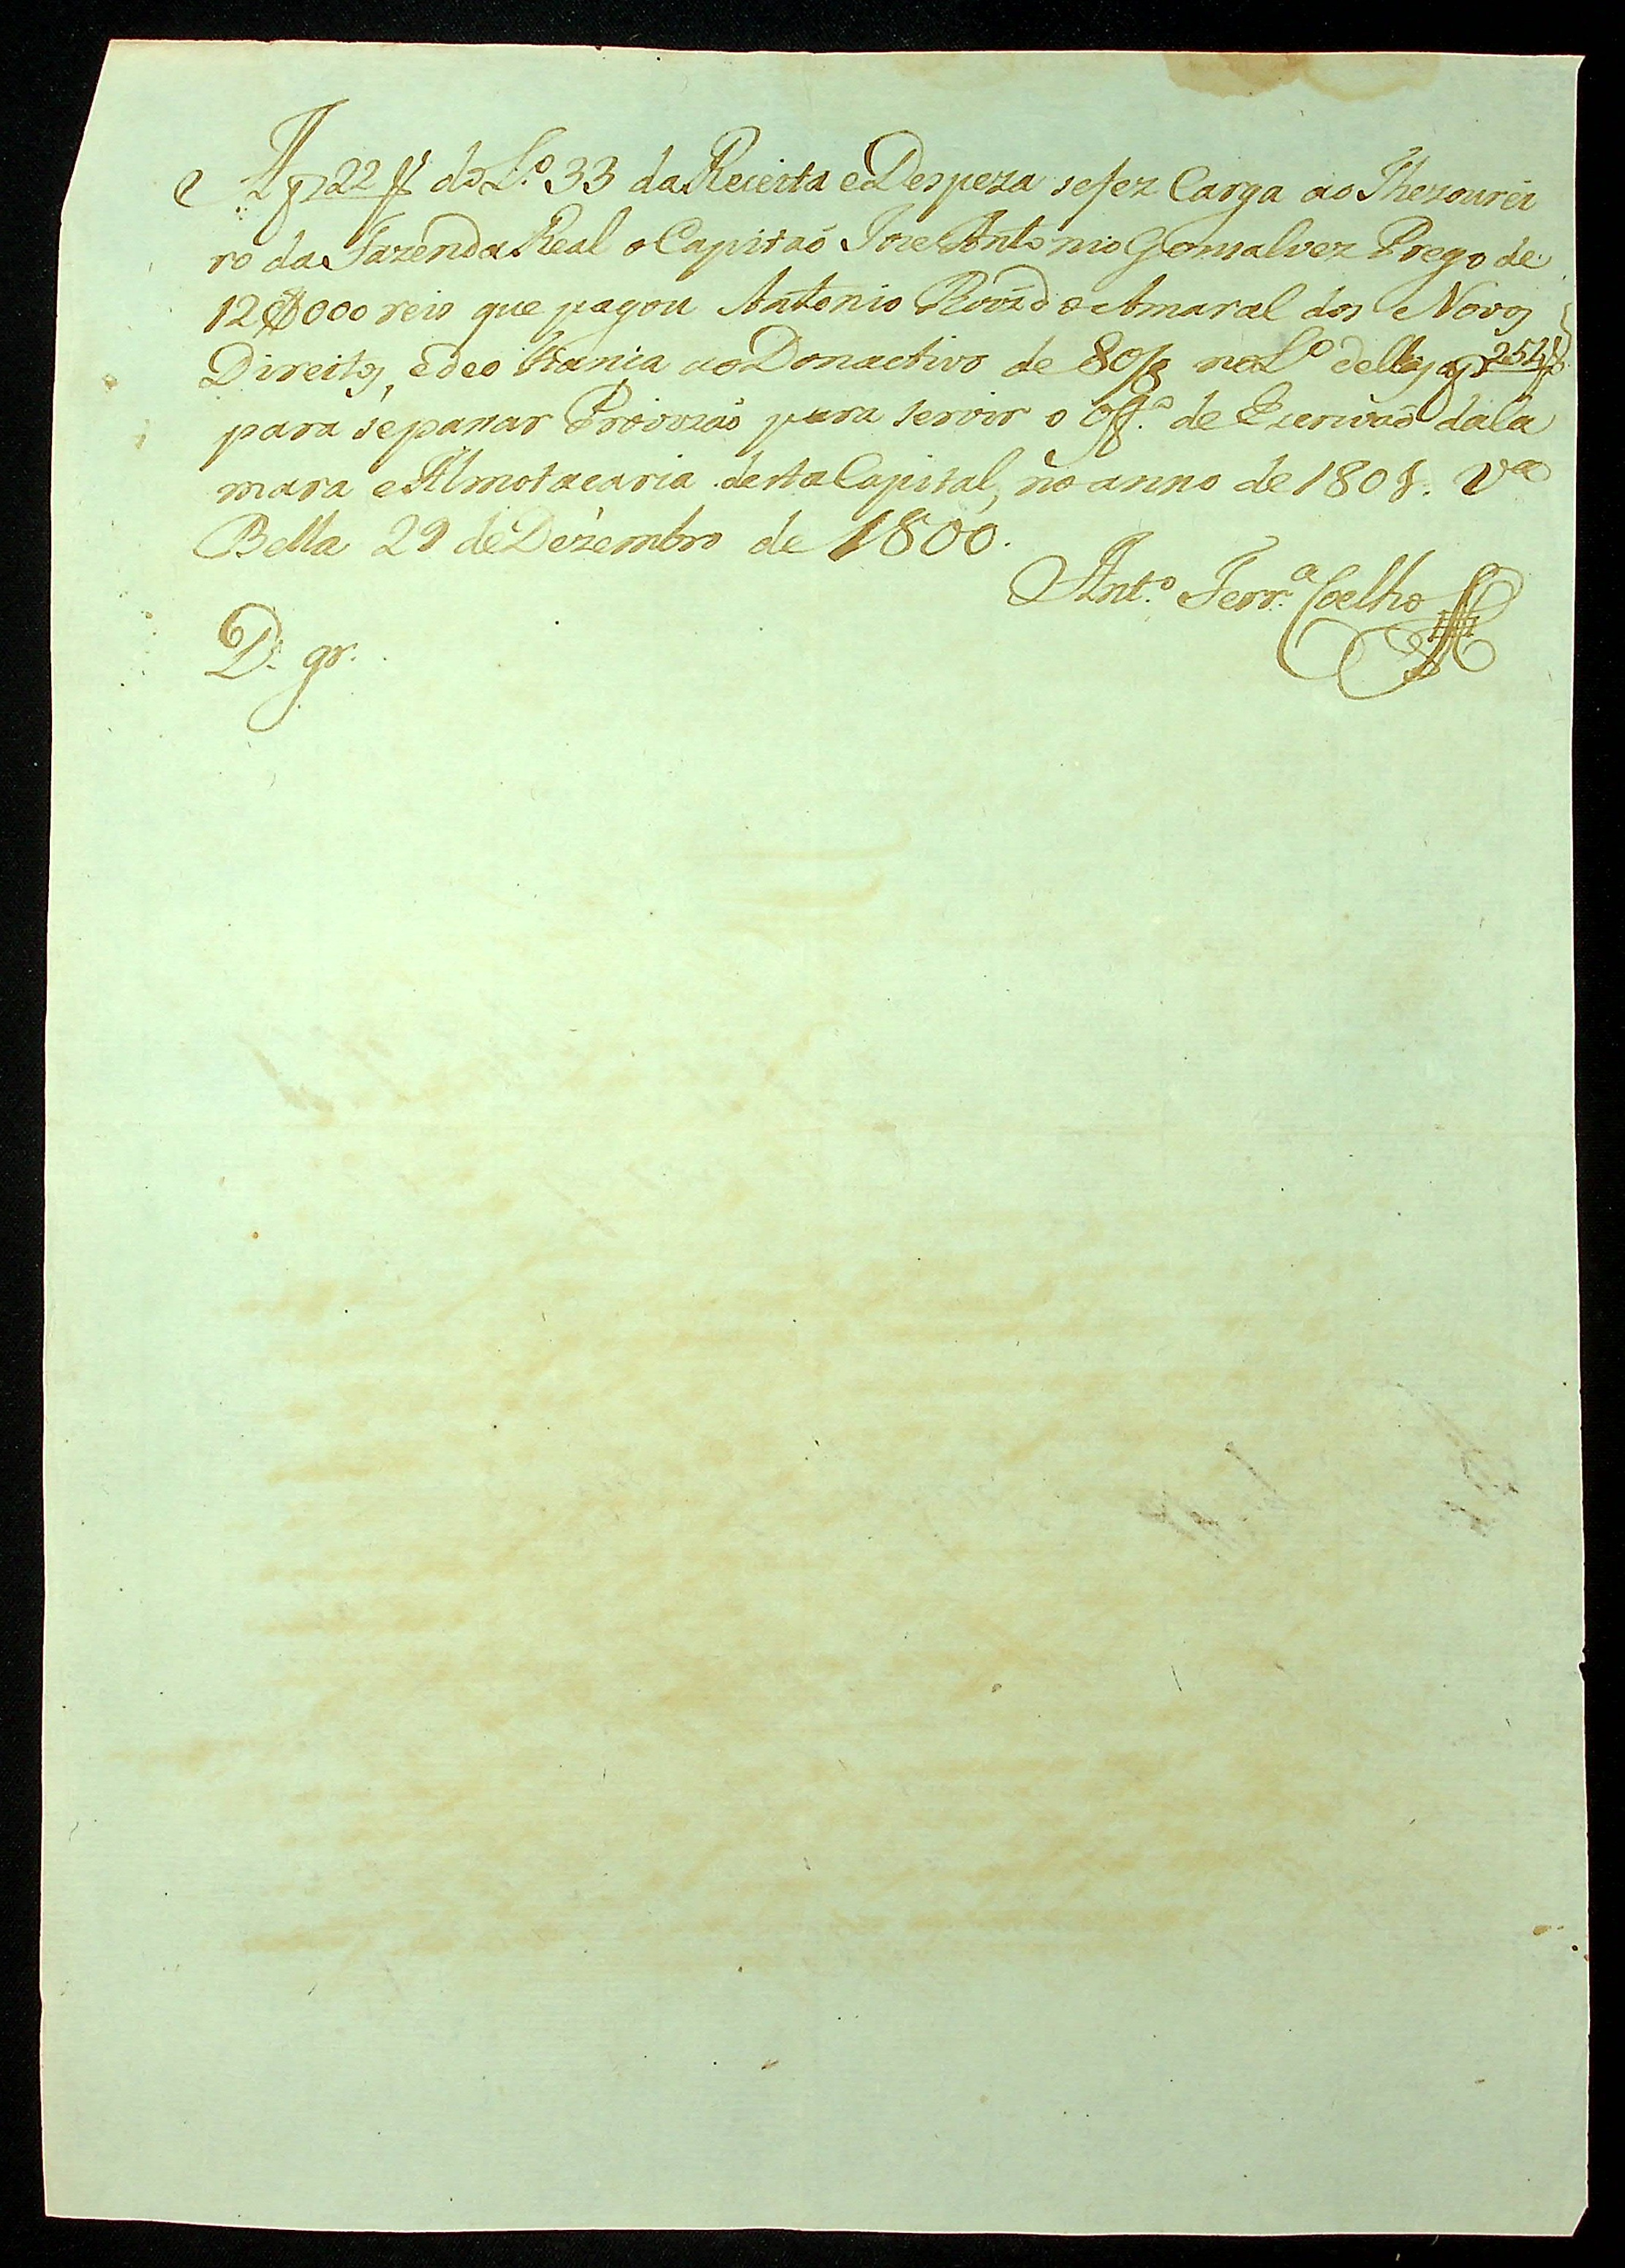 A f 22 v do L.º 33 da Receita e Despeza se fez Carga ao Thezourei
ro da Fazenda Real o Capitaõ Joze Antonio Gonsalvez Prego de
12$000 reis que pagou Antonio do Amaral dos Novos
Direitos, e deo fiania ao Donactivo de 80/8 no L.º dellas a f 254 v
para se pasar Provizaõ para servir o Off.º de Escrivaõ da Ca
mara e Almotacaria desta Capital, no anno de 1801. V.ª
Bella 29 de Dezembro de 1800.
Ant.º Ferr.ª Coelho
D. gr.